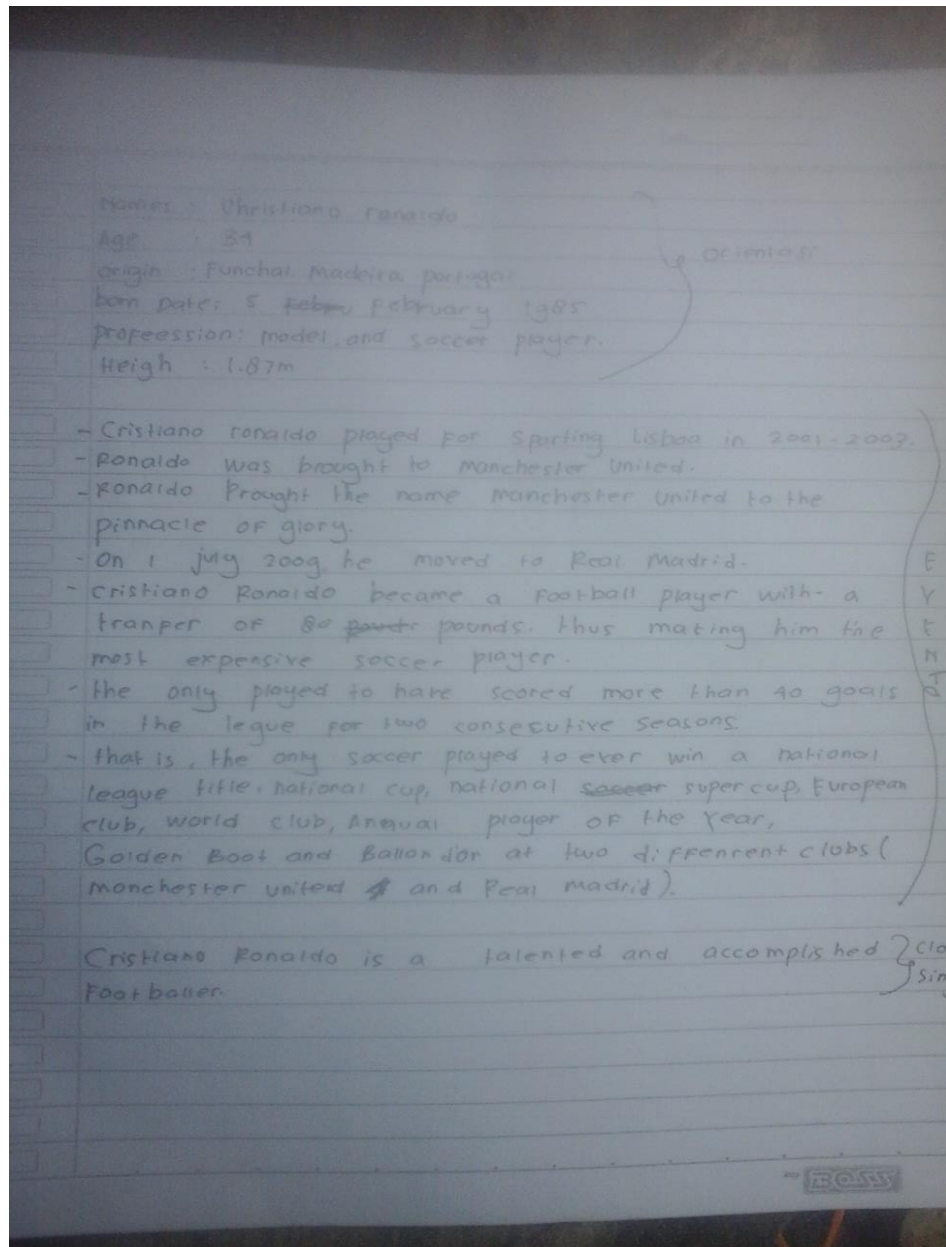 Names : Christiano ronaldo
Age : 34
origin : Funchal Madeira portugal
born Date: 5 Febru February 1985
profeession: model and soccer player.
Heigh : 1.87m
orientasi
- Cristiano ronaldo played for Sporting Lisboa in 2001-2003.
- Ronaldo was brought to Manchester United.
- Ronaldo Prought the name manchester United to the
pinnacle of glory.
- On 1 july 2009 he moved to Real Madrid.
- Cristiano Ronaldo became a football player with a
tranper of 80 pounds. thus making him the
most expensive soccer player.
- the only played to have scored more than 40 goals
in the legue for two consecutive seasons.
- that is, the only soccer played to ever win a national
league title, national cup, national soccer supercup, European
club, world club, Anqual player of the Year,
Golden Boot and Ballon d'or at two diffenrent clubs (
manchester united and Real madrid).
EVENT
Cristiano Ronaldo is a talented and accomplished
Footballer.
Clo
sin
BOSS